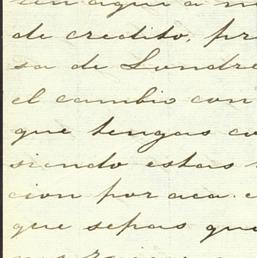 aqui a
de credito, pr
sa de Londre
el cambio con
que tengas co
siendo estas
cion por aca. 
que sepas que